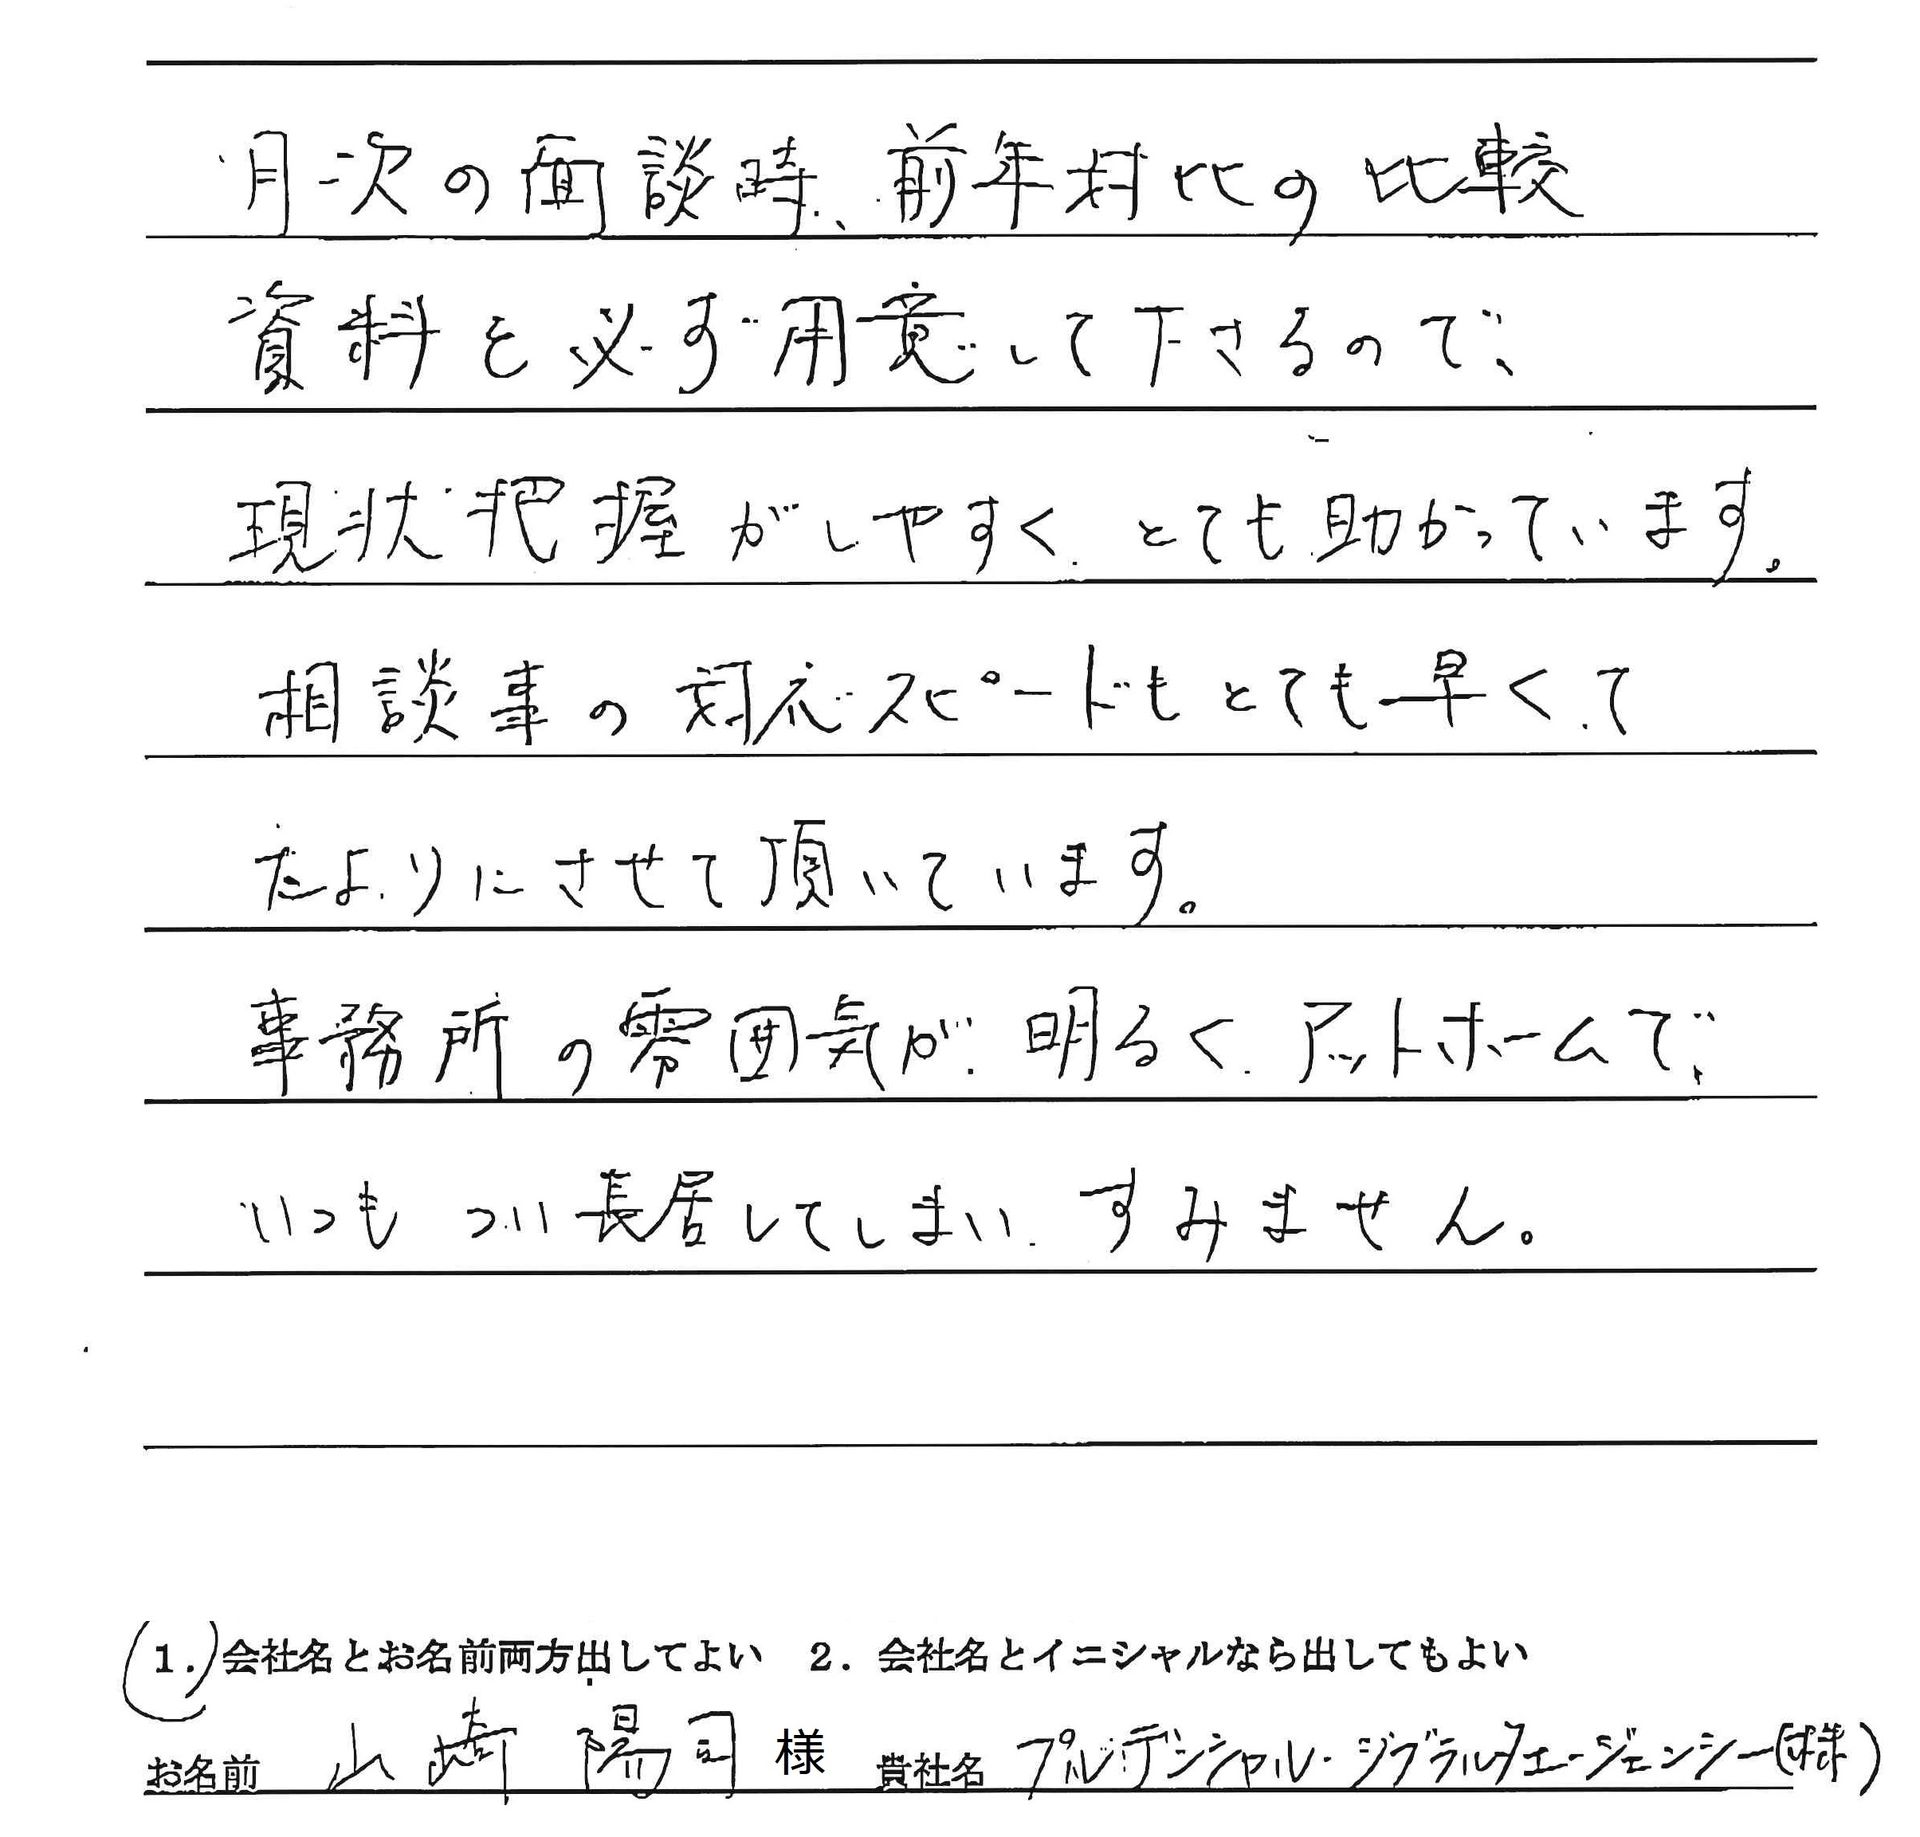 月次の面談時、前年対比の比較
資料を必ず用意して下さるので、
現状把握がしやすく、とても助かっています。
相談事の対応スピードもとても早くて
たよりにさせて頂いています。
事務所の雰囲気が明るくアットホームで、
いつもつい長居してしまいすみません。
1. 会社名とお名前両方出してよい 2. 会社名とイニシャルなら出してもよい
お名前 山崎 陽司 様 貴社名 プルデンシャル・ジブラルタエージェンシー(様)